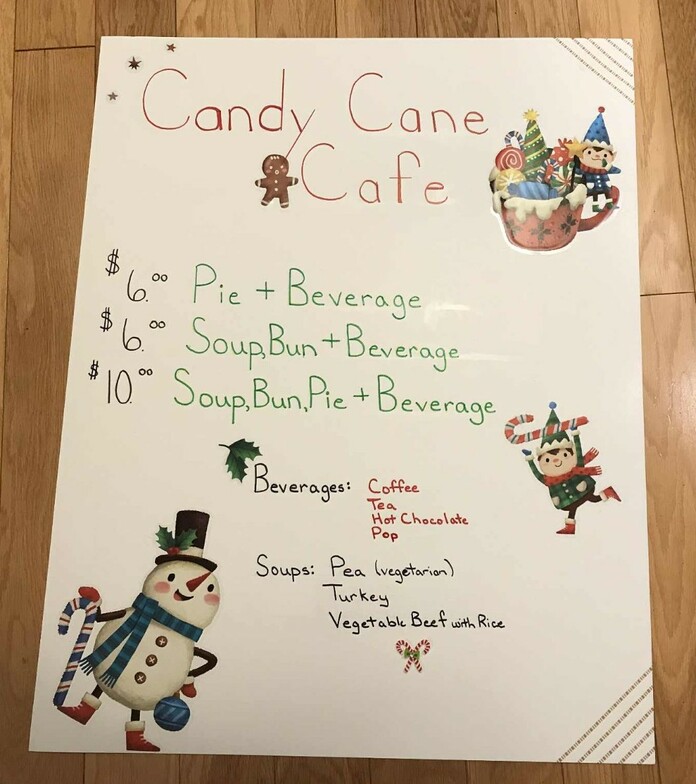 Candy Cane
Cafe
$6.00 Pie + Beverage
$6.00 Soup, Bun + Beverage
$10.00 Soup, Bun, Pie + Beverage
Beverages: Coffee
Tea
Hot Chocolate
Pop
Soups: Pea (vegetarian)
Turkey
Vegetable Beef with Rice